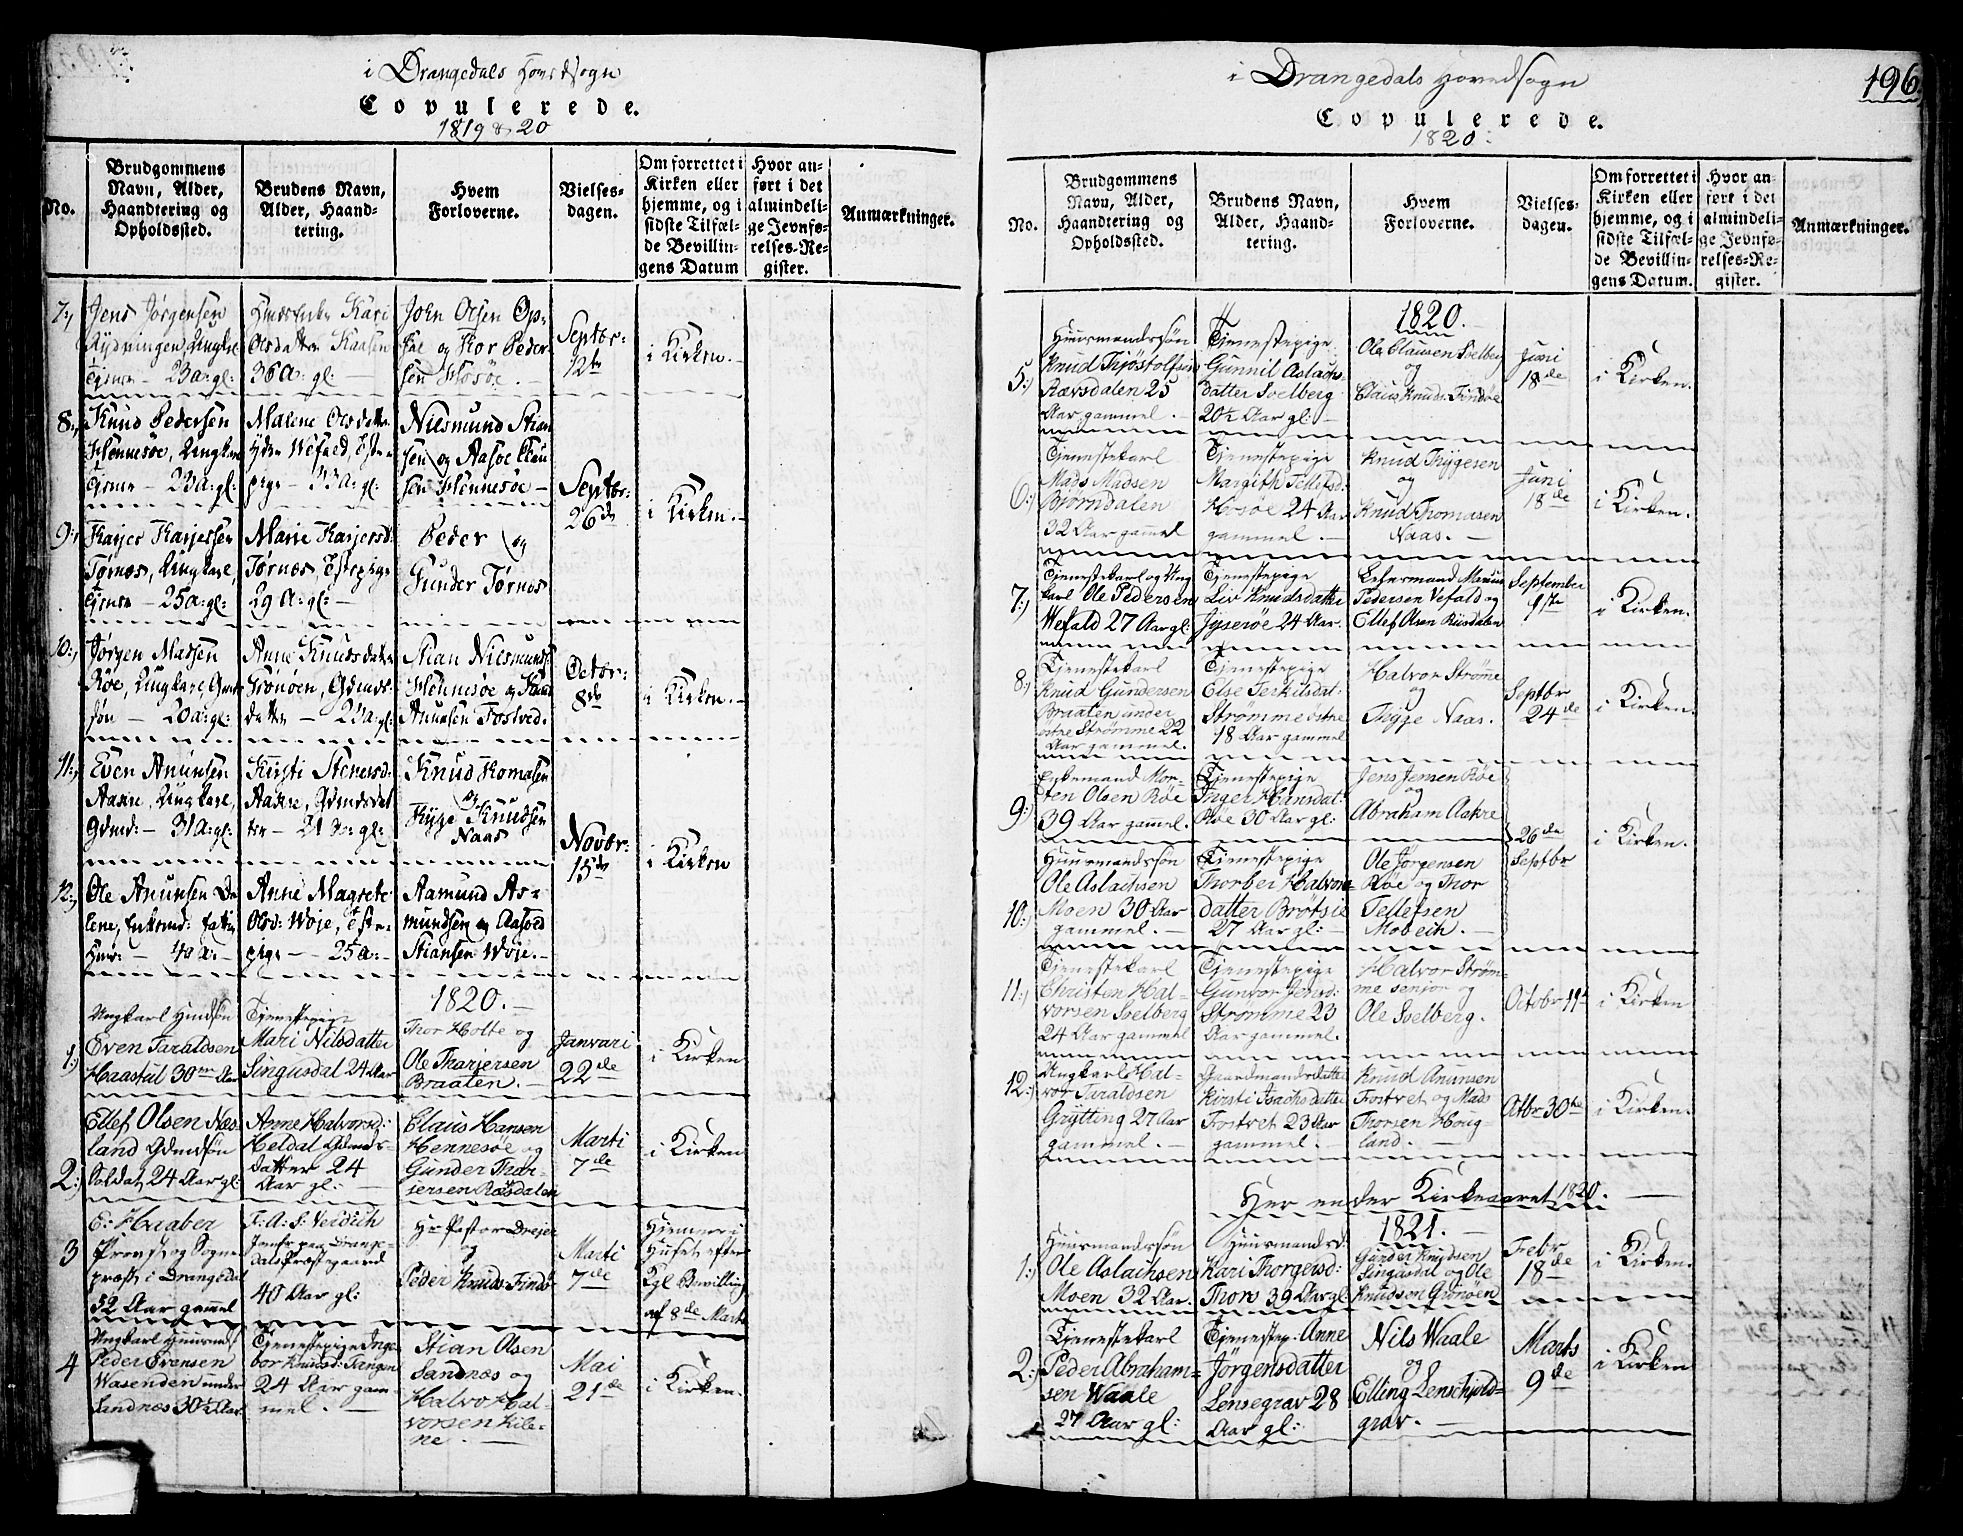 i Drangedals Hovedsogn
Copulerede.
1819 & 20
No.
Brudgommens
Navn, Alder,
Haandtering og
Opholdssted.
Brudens Navn,
Alder, Haand-
tering.
Hvem
Forloverne.
Vielses-
dagen.
Om forrettet i
Kirken eller
hjemme, og i
sidste Tilfæl-
de Bevillin-
gens Datum
Hvor an-
ført i det
almindeli-
ge Jevnfø-
relses-Re-
gister.
Anmærkninger.
7:,
Jens Jørgensen
Rydningen, Ungkarl
23 a: gl:
Kari
Olsdatter Kaasen
36 a: gl:
John Olsen
og Thor Peder-
sen Hosøe.
Septbr:
12te
i Kirken.
8:,
Knud Pedersen
Hennesøe, Ungkarl
Tjener - 23 a: gl:
Malene Olsdatter
Wefald,
pige - 33 a: gl:
Nilsmund Stian
sen og
sen Hennesøe
Septbr:
26de
i Kirken.
9:,
Karjer Karjersen
Tørnes, Ungkarl,
Tjener - 25 a: gl:
Marie Karjersd:
Tørnes, Tjstepige
29 A: gl:
Peder og
Gunder Tørnes
10:,
Jørgen Madsen
Røe, Ungkarl, Gmd
søn - 20 a: gl:
Anne Knudsdatter
Grønøen, Gdmds
datter - 23 a: gl:
Stian Nilsmunds
Hennesøe og Knud
Anunsen Fostved.
Octbr:
8de
i Kirken.
11:,
Even Anunsen
Aakre, Ungkarl,
Gdmd: - 31 A: gl:
Kirsti Stenersd:
Aakre, Gdmdsdat
ter - 21 Aa: gl:
Knud Thomasen
og
Thyge Knudsen
Naas
Novbr:
15de
i Kirken
12:,
Ole Anunsen
Anne Magrete
Olsd: Woje,
pige - 25 a:
Aamund As-
mundsen og Aasved
Stiansen Woje.
1820.
1:)
Ungkarl
Even Taraldsen
Haastül 30 Aar
Tjenestepige
Mari Nilsdatter
Singusdal 24 Aar
Thor Holte og
Ole Tharjersen
Braaten.
Janvari
22de
i Kirken
2:)
Ellef Olsen Næs
land Gdmdsøn
Soldat 24 Aar gl:
Anne Halvorsd:
Heldal Gdmds-
datter 24
Aar gl:
Claus Hansen
Hennesøe og
Gunder Thar-
jersen Ræsdalen
Marti
7de
i Kirken
3
E: Haaber
Provst og Sogne
præst i Drangedal
52 Aar gammel
F: A: S: Veidich
Jomfr paa Drange-
dals Præstegaard
40 Aar gl:
Hr Pastor Dreier
og
Peder Knuds Findø
Marti
7de
Hjemme i
Huset efter
Kgl Bevilling
af 8de Marts
4
Ungkarl
Peder Evensen
Wasenden under
Sandnæs 30½ Aar
Tjenestepige Inge
bor Knudsd: Tangen
24 Aar gam-
mel.
Stian Olsen
Sandnæs og
Halvo Hal-
vorsen Kile-
ne.
Mai
21de
i Kirken.
i Drangedals Hovedsogn
196
Copulerede.
1820:
No.
Brudgommens
Navn, Alder,
Haandtering og
Opholdssted.
Brudens Navn,
Alder, Haand-
tering.
Hvem
Forloverne.
Vielses-
dagen.
Om forrettet i
Kirken eller
hjemme, og i
sidste Tilfæl-
de Bevillin-
gens Datum.
Hvor an-
ført i det
almindeli-
ge Jevnfø-
relses-Re-
gister.
Anmærkninger.
1820.
5:)
Huusmandssøn
Knud Thjøstolfsen
Rævsdalen 25
Aar gammel.
Tjenestepige
Gunnil Aslachs
datter Svelberg
20½ Aar gl:
Ole Clausen Svelberg
og
Claus Knuds: Findøe
Juni
18de
i Kirken.
6:)
Tjenestekarl
Mads Madsen
Bjørndalen
32 Aar gammel
Tjenestepige
Margith Tellefsd:
Hosøe 24 Aar
gammel.
Knud Thygesen
og
Knud Thomasen
Naas.
Juni
18de
i Kirken.
7:)
Tjenestekarl og Ung
karl Ole Pedersen
Wefald 27 Aar gl:
Tjenestepige
Liv Knudsdatter
Jyserøe 24 Aar.
Pedersen Vefald og
Ellef Olsen Riisdalen
September
9de
i Kirken.
8:)
Tjenestekarl
Knud Gundersen
Braaten under
østre Strømme 22
Aar gammel.
Tjenestepige
Else Terkilsdat:
Strømme østre
18 Aar gammel
Halvor Strøme
og
Thyge Naas.
Septbr
24de
i Kirken.
9:)
Enkemand Mor-
ten Olsen Røe
39 Aar gammel.
Tjenestepige
Inger Hansdat:
Røe 30 Aar gl:
Jens Jensen Røe
og
Abraham Aakre
26de
Septbr
i Kirken.
10:)
Huusmandssøn
Ole Aslachsen
Moen 30 Aar
gammel.
Tjenestepige
Thorber Halvors-
datter Brøtsie
27 Aar gl:
Ole Jørgensen
Røe og Thor
Tellefsen
Mobech.
11:)
Tjenestekarl
Christen Hal-
vorsen Svelberg
24 Aar gammel
Tjenestepige
Gunvor Jensd:
Strømme 23
Aar gammel.
Halvor Strøm-
me senjor og
Ole Svelberg.
Octobr 19de
i Kirken
12:)
Ungkarl Hal-
vor Taraldsen
Grytting 27 Aar
gammel.
Gaardmandsdatter
Kirsti Isachsdatter
Fostvet 23 Aar
gammel.
Knud Anunsen
Fostvet og Mads
Thorsen Houg-
land.
Octbr 30te
i Kirken.
Her ender Kirkeaaret 1820.
1821.
1:)
Huusmandssøn
Ole Aslachsen
Moen 32 Aar.
Huusmandsd:
Kari Thorgersd:
Thors 39 Aar gl:
Gunder Knudsen
Singusdal og Ole
Knudsen Grønøen
Febr
18de
i Kirken.
2:)
Tjenestekarl
Peder Abraham-
sen Waale
27 Aar gl:
Tjenestep: Anne
Jørgensdatter
Lensegrav 28
Aar gl:
Nils Waale
og
Elling Lenschjold-
grav.
Marts
9de
i Kirken